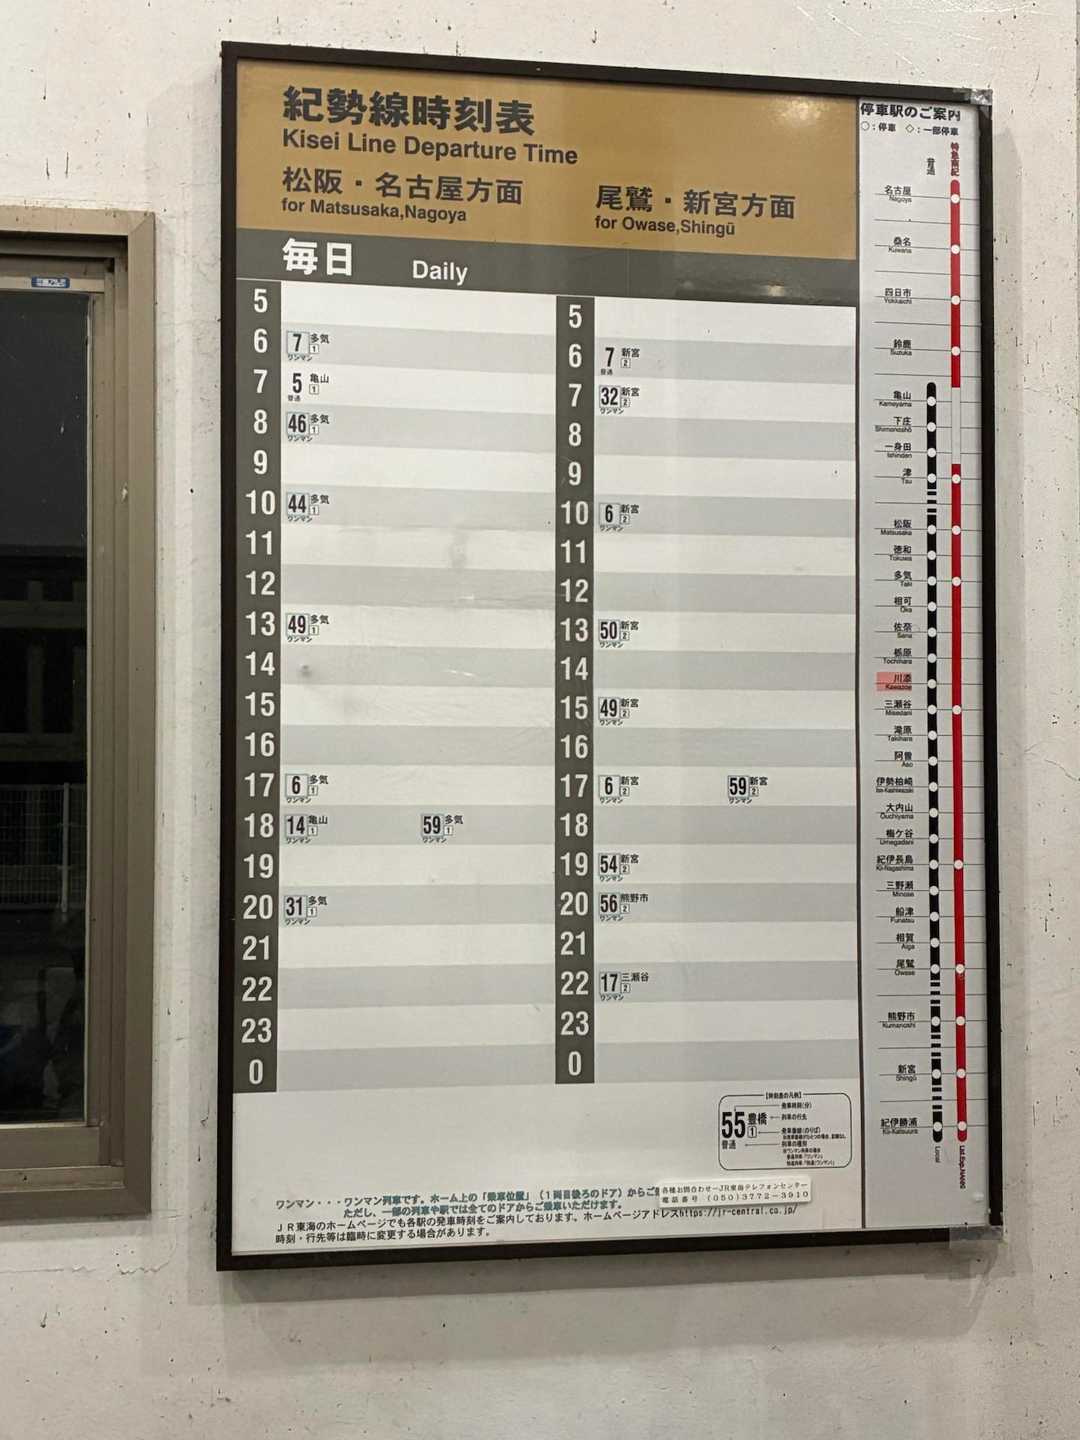 紀勢線時刻表
Kisei Line Departure Time
松阪・名古屋方面
for Matsusaka,Nagoya
尾鷲・新宮方面
for Owase,Shingū
毎日 Daily
5
6 7 多気 1 ワンマン
7 5 亀山 1 普通
8 46 多気 1 ワンマン
9
10 44 多気 1 ワンマン
11
12
13 49 多気 1 ワンマン
14
15
16
17 6 多気 1 ワンマン
18 14 亀山 1 ワンマン 59 多気 1 ワンマン
19
20 31 多気 1 ワンマン
21
22
23
0
5
6 7 新宮 2 普通
7 32 新宮 2 ワンマン
8
9
10 6 新宮 2 ワンマン
11
12
13 50 新宮 2 ワンマン
14
15 49 新宮 2 ワンマン
16
17 6 新宮 2 ワンマン 59 新宮 2 ワンマン
18
19 54 新宮 2 ワンマン
20 56 熊野市 2 ワンマン
21
22 17 三瀬谷 2 ワンマン
23
0
【時刻表の凡例】
55 豊橋 1 普通
発車時刻(分)
列車の行先
発車番線(のりば)
列車の種別
ワンマン・・・ワンマン列車です。ホーム上の「乗車位置」（1両目後ろのドア）からご
ただし、一部の列車や駅では全てのドアからご乗車いただけます。
JR東海のホームページでも各駅の発車時刻をご案内しております。ホームページアドレスhttps://jr-central.co.jp/
時刻・行先等は臨時に変更する場合があります。
各種お問合わせ－JR東海テレフォンセンター
電話番号 (050)3772-3910
停車駅のご案内
○：停車 ◇：一部停車
普通
特急南紀
名古屋
Nagoya
桑名
Kuwana
四日市
Yokkaichi
鈴鹿
Suzuka
亀山
Kameyama
下庄
Shimonoshō
一身田
Ishinden
津
Tsu
松阪
Matsusaka
徳和
Tokuwa
多気
Taki
相可
Ōka
佐奈
Sana
栃原
Tochihara
川添
Kawazoe
三瀬谷
Misedani
滝原
Takihara
阿曽
Aso
伊勢柏崎
Ise-Kashiwazaki
大内山
Ōuchiyama
梅ケ谷
Umegadani
紀伊長島
Kii-Nagashima
三野瀬
Minose
船津
Funatsu
相賀
Aiga
尾鷲
Owase
熊野市
Kumanoshi
新宮
Shingū
紀伊勝浦
Kii-Katsuura
Local
Ltd.Exp.NANKI